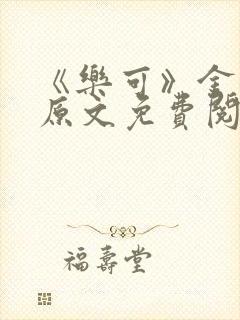 《樂可》全
原文免費閱
福壽堂